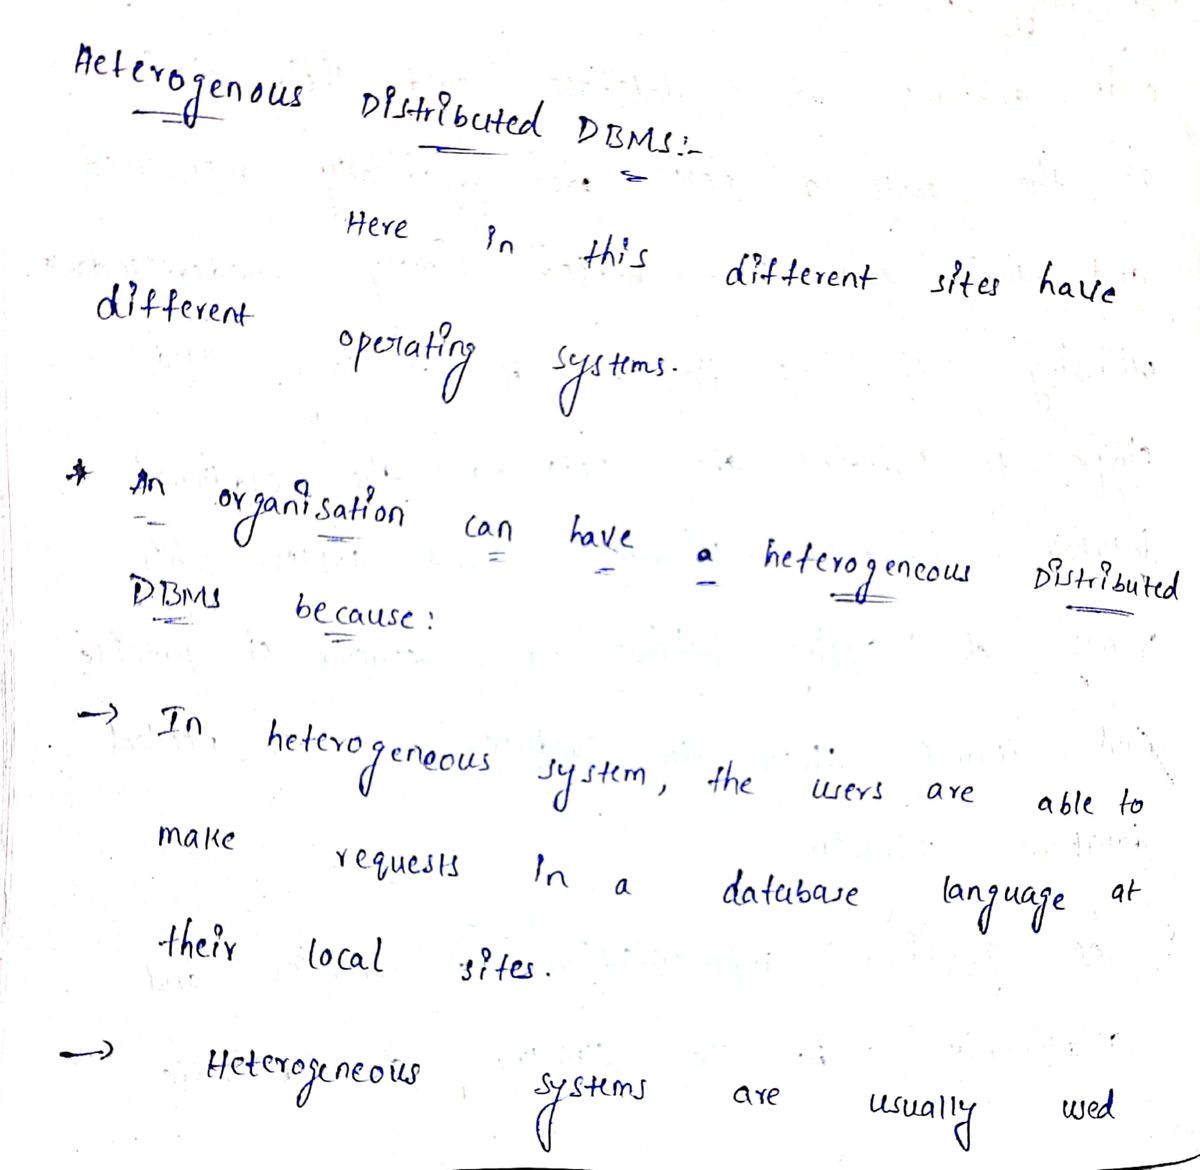 Heterogenous Distributed DBMS:-
Here in this different sites have
different operating systems.
* An organisation can have a heterogeneous Distributed
DBMS because:
→ In heterogeneous system, the users are able to
make requests in a database language at
their local sites.
→ Heterogeneous systems are usually used